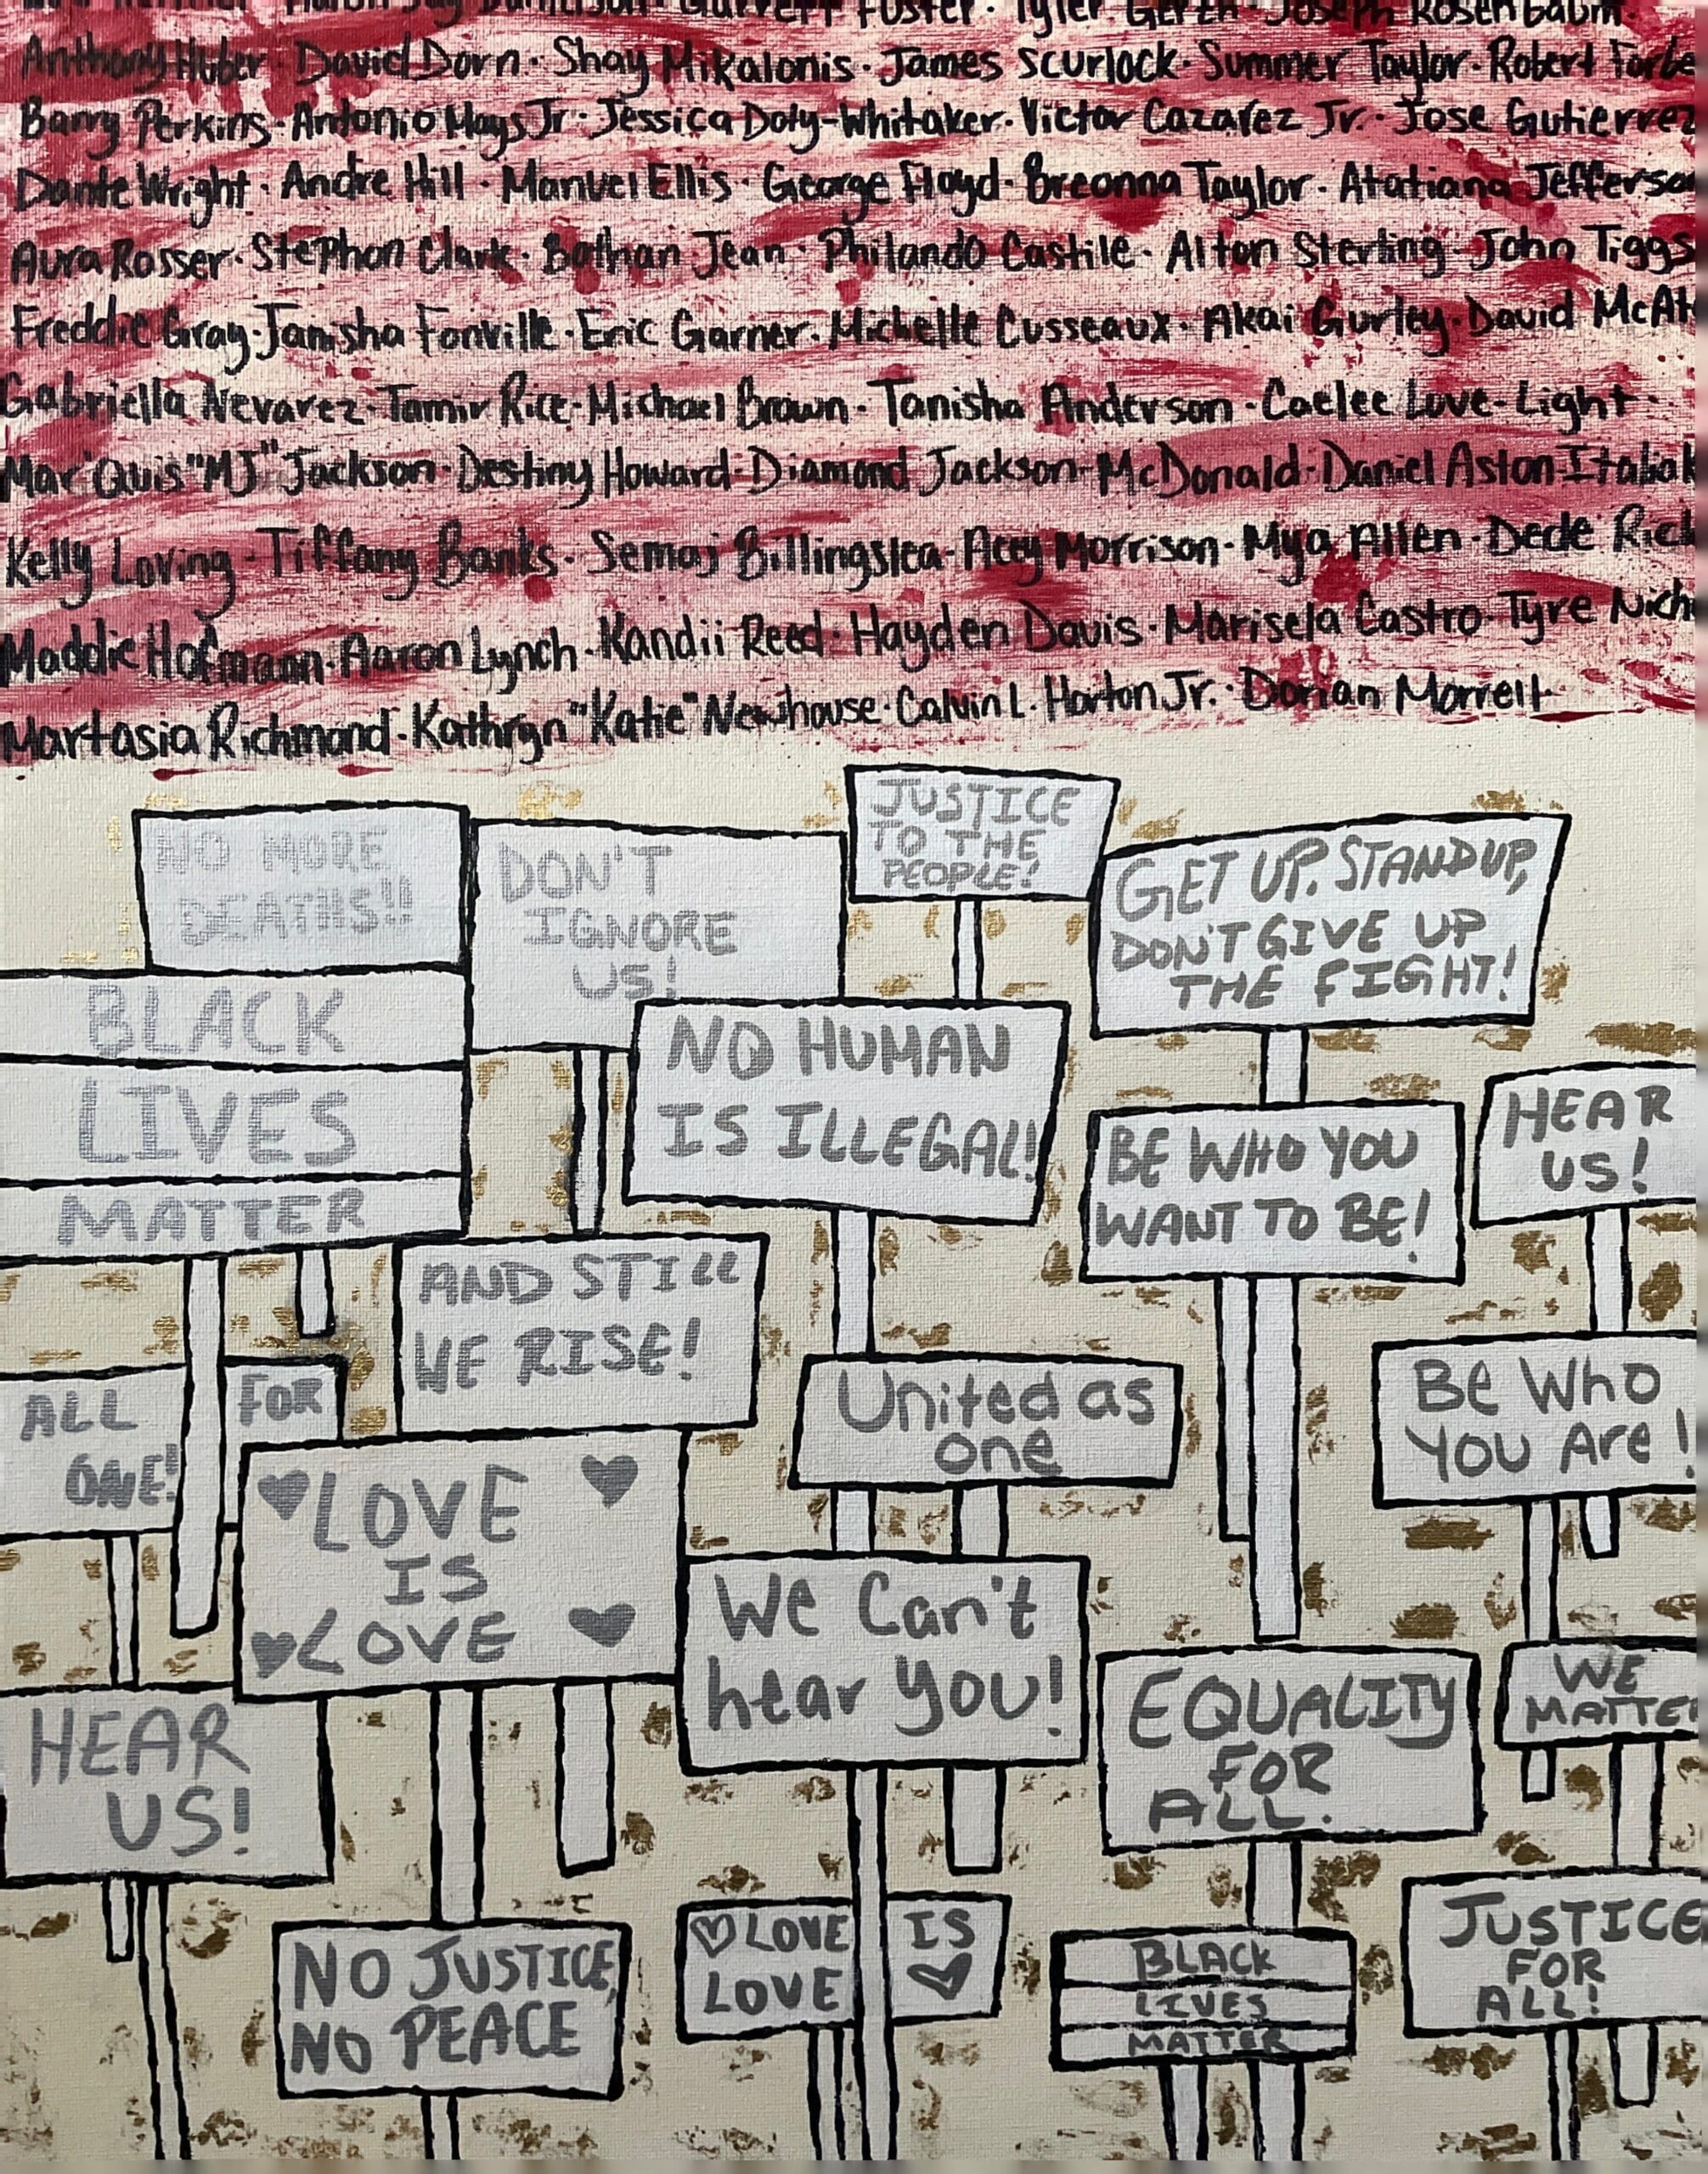 Garrett Foster · Tyler Gerth · Joseph Rosenbaum ·
Anthony Huber · David Dorn · Shay Mikalonis · James Scurlock · Summer Taylor · Robert Forbe
Barry Perkins · Antonio Mays Jr · Jessica Doty-Whitaker · Victor Cazares Jr. · Jose Gutierrez
Dante Wright · Andre Hill · Manuel Ellis · George Floyd · Breonna Taylor · Atatiana Jefferso
Aura Rosser · Stephon Clark · Bothan Jean · Philando Castile · Alton Sterling · John Tiggs
Freddie Gray · Janisha Fonville · Eric Garner · Michelle Cusseaux · Akai Gurley · David McAt
Gabriella Nevarez · Tamir Rice · Michael Brown · Tanisha Anderson · Caelee Love-Light ·
Mar'Quis "MJ" Jackson · Destiny Howard · Diamond Jackson-McDonald · Daniel Aston ·
Kelly Loving · Tiffany Banks · Semaj Billingslea · Acey Morrison · Mya Allen · Dede Rick
Maddie Hofmann · Aaron Lynch · Kandii Reed · Hayden Davis · Marisela Castro · Tyre Nich
Martasia Richmond · Kathryn "Katie" Newhouse · Calvin L. Horton Jr. · Dorian Morrell ·
NO MORE
DEATHS!!
DON'T
IGNORE
US!
JUSTICE
TO THE
PEOPLE!
GET UP, STAND UP,
DON'T GIVE UP
THE FIGHT!
BLACK
LIVES
MATTER
NO HUMAN
IS ILLEGAL!
BE WHO YOU
WANT TO BE!
HEAR
US!
AND STILL
WE RISE!
ALL FOR
ONE!
United as
one
Be Who
You Are!
LOVE
IS
LOVE
We Can't
hear you!
HEAR
US!
EQUALITY
FOR
ALL.
WE
MATTER
NO JUSTICE,
NO PEACE
LOVE IS
LOVE
BLACK
LIVES
MATTER
JUSTICE
FOR
ALL!